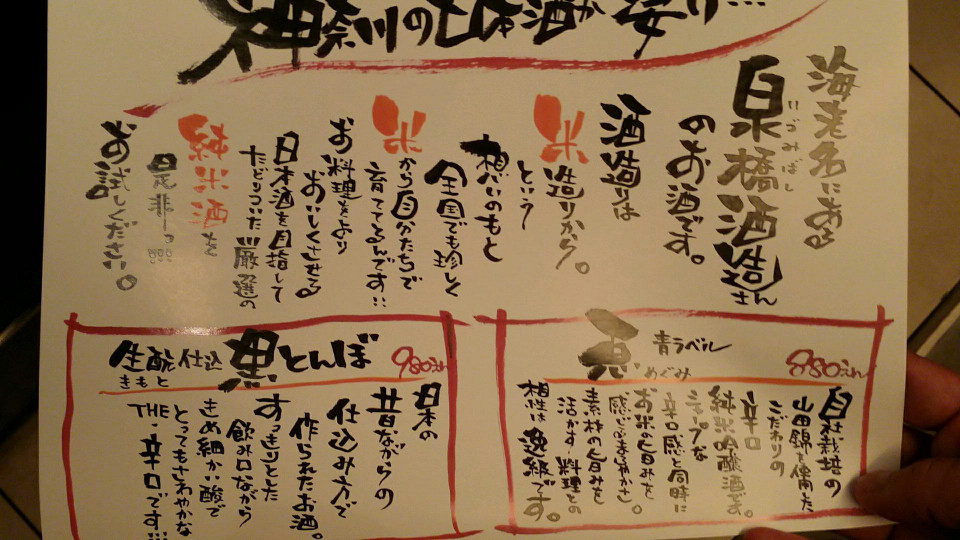 神奈川の日本酒が
海老名にある
泉橋酒造さん
いづみばし
のお酒です。
酒造りは
米造りから。
という
想いのもと
全国でも珍しく
米から自分たちで
育ててるんです!!
お料理をより
おいしくさせる
日本酒を目指して
たどりついた!!!厳選の
純米酒を
是非っ
お試しください。
恵 青ラベル 880えん
めぐみ
自社栽培の
山田錦を
こだわりの
辛口
純米吟醸酒です。
シャープな
辛口感と同時に
お米の旨みを
感じるまろやかさ。
素材の旨みを
活かす料理との
相性は逸級です。
生酛仕込 黒とんぼ 980えん
きもと
日本の
昔ながらの
仕込み方で
作られたお酒。
すっきりとした
飲み口ながら
きめ細かい酸で
とってもさわやかな
THE・辛口です!!!